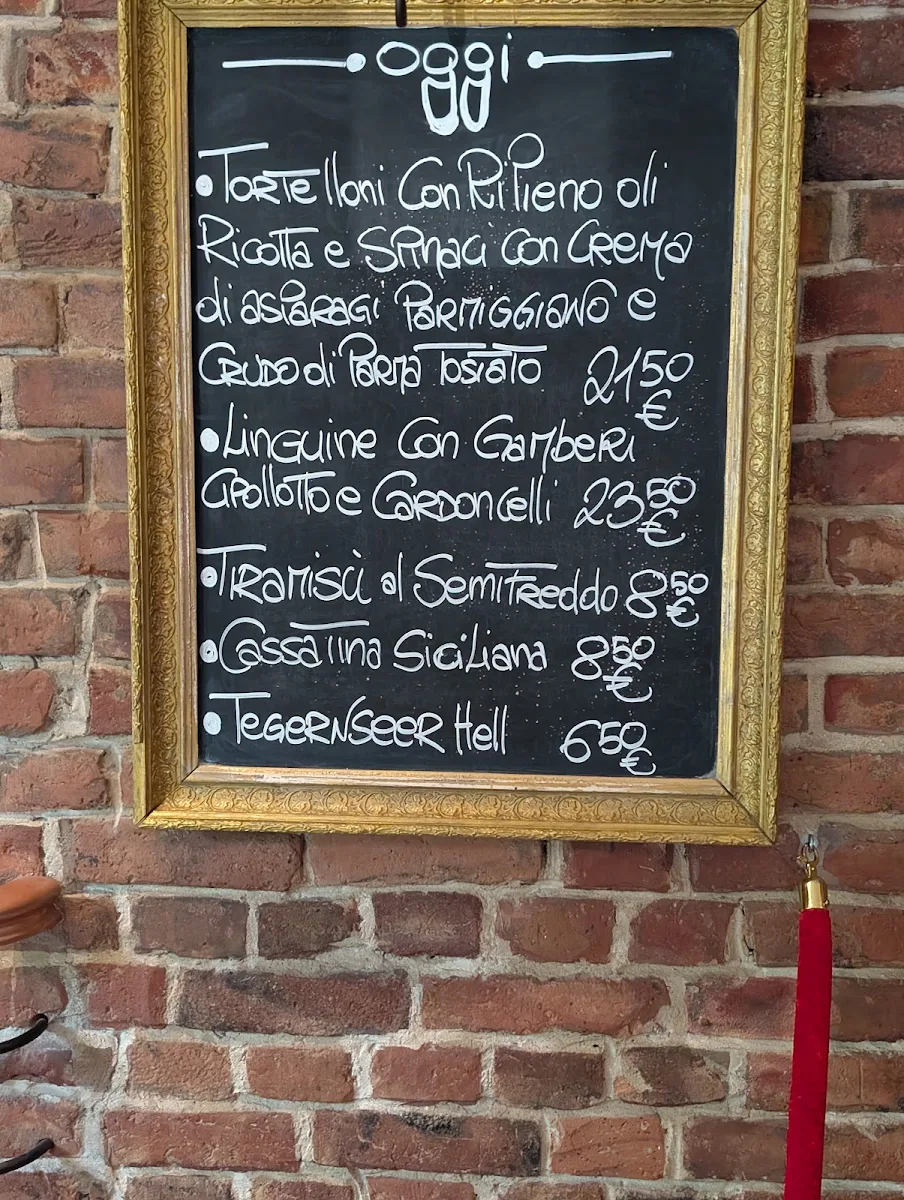 oggi
• Tortelloni Con Ripieno di
Ricotta e Spinaci Con Crema
di asparagi Parmiggiano e
Crudo di Parma Tostato 21 50 €
• Linguine Con Gamberi
Cipollotto e Cardoncelli 23 50 €
• Tiramisù al Semifreddo 8 50 €
• Cassatina Siciliana 8 50 €
• Tegernseer Hell 6 50 €